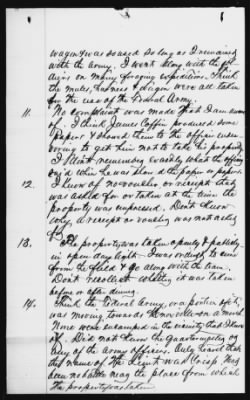 wagon & was so used so long as I remained
with the army. I went along with the
on many foraging expeditions. I think
the mules, harness & wagon were all taken
for the use of the Federal Army.
11. No complaint was made that I am aware
of. I think James Coffin produced some
paper & showed them to the officer
to get him not to take his property
I don't remember exactly what the officer
said when he was shown the paper or papers.
12. I know of no voucher or receipt that
was asked for or taken at the time the
property was impressed. Don't know
why a receipt or voucher was not asked
for.
13. The property was taken openly & publicly
in open day light. I was ordered to come
from the field & go along with the team.
Don't recollect whether it was taken
before or after dinner.
14. I think the Federal Army, or a portion of it,
was moving towards Knoxville on a
None were encamped in the vicinity that I know
of. Did not know the quartermaster or
any of the army officers. Only heard that
the name of the Lieut was Crisp. Had
been not a mile away the place from which
the property was taken.